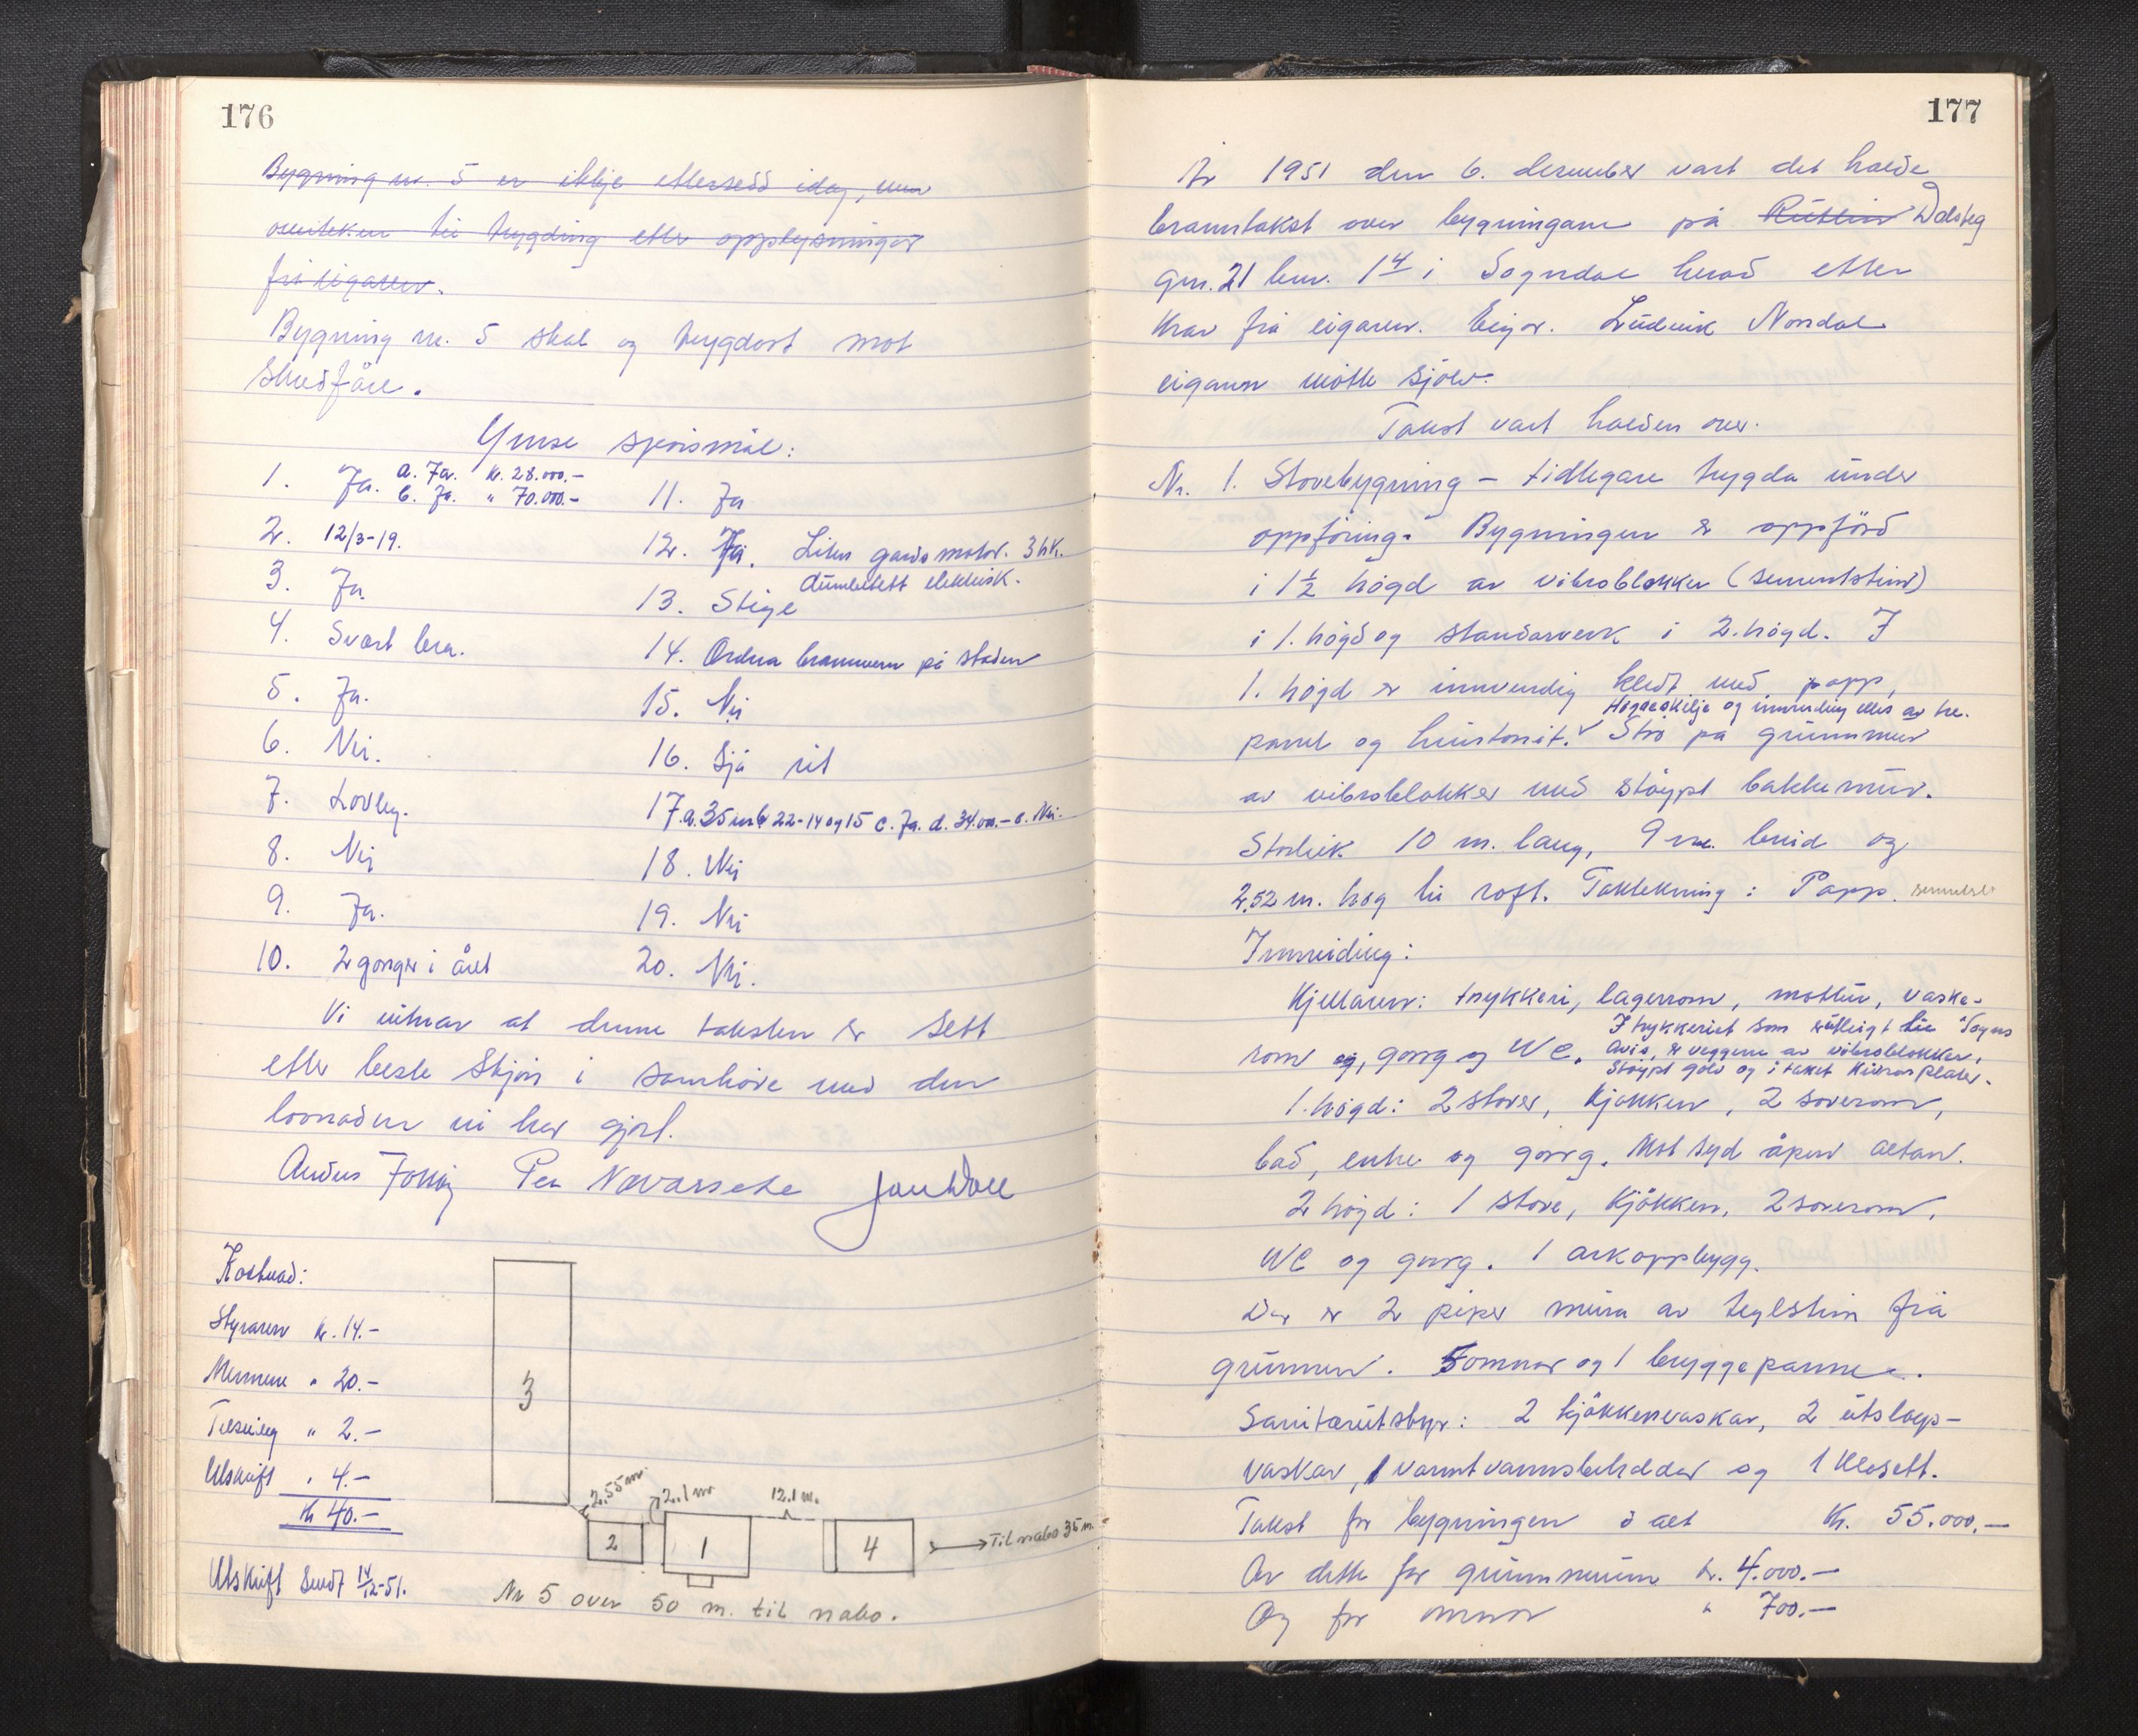 176
Bygning nr. 5 er ikkje ettersedd idag, men
omteken til trygding etter opplysningar
frå eigaren.
Bygning nr. 5 skal og trygdast mot
skredfåre.
Ymse spørsmål:
1. Ja. a. Ja. kr. 28.000.-
b. Ja. " 70.000.-
2. 12/3-19.
3. Ja.
4. Svært bra.
5. Ja.
6. Nei.
7. Lovleg.
8. Nei
9. Ja.
10. 2 gonger i året
11. Ja
12. Ja. Liten gardsmotor. 3 hk.
elektrisk.
13. Stige
14. Ordna brannvern på staden
15. Nei
16. Sjå rit
17. a. 35 m b 22-14 og 15 c. Ja. d. 34.000.- e. Nei.
18. Nei
19. Nei
20. Nei.
Vi vitnar at denne taksten er sett
etter beste skjøn i samhøve med den
lovnaden vi har gjort.
Per Navarsete
Kostnad:
Styraren kr. 14.-
Mennene " 20.-
Tilseiing " 2.-
Utskrift " 4.-
Kr 40.-
Utskrift sendt 14/12-51.
3
2.55 m
2.1 m
12.1 m.
2
1
4
Til nabo 35 m.
Nr 5 over 50 m. til nabo.
177
År 1951 den 6. desember vart det halde
branntakst over bygningane på Rutlin Dalsteg
gnr. 21 bnr. 14 i Sogndal herad etter
krav frå eigaren. Eigar. Ludvik Norsdal
eigaren møtte sjølv.
Takst vart halden over.
Nr. 1. Stovebygning – tidlegare trygda under
oppføring. Bygningen er oppførd
i 1½ høgd av vibroblokker (sementstein)
i 1. høgd og standarverk i 2. høgd. I
1. høgd er innvendig kledt med papp,
Høgdeskilje og innreiing elles av tre.
panel og huntonit. Stø på grunnmur
av vibroblokker med støypt bakkemur.
Storleik 10 m. lang, 9 m. breid og
2,52 m. høg til roft. Taktekning: Papp.
Innreiding:
Kjellaren: trykkeri, lagerrom, mattur, vaske-
rom og, gang og WC. I trykkeriet som utleigt til "Sogns
Avis, er veggene av vibroblokker.
Støypt golv og i taket plater.
1. høgd: 2 stover, kjøkken, 2 soverom,
bad, entre og gang. Mot syd åpen altan.
2 høgd: 1 stove, kjøkken, 2 soverom,
WC og gang. 1 arkoppbygg.
Der er 2 piper mura av teglstein frå
grunnen. 5 omnar og 1 bryggepanne.
Sanitærutstyr: 2 kjøkkenvaskar, 2 utslags-
vaskar, 1 varmtvannsbehaldar og 1 klosett.
Takst for bygningen i alt kr. 55.000.-
Av dette for grunnmuren kr. 4.000.-
Og for omnar " 700.-